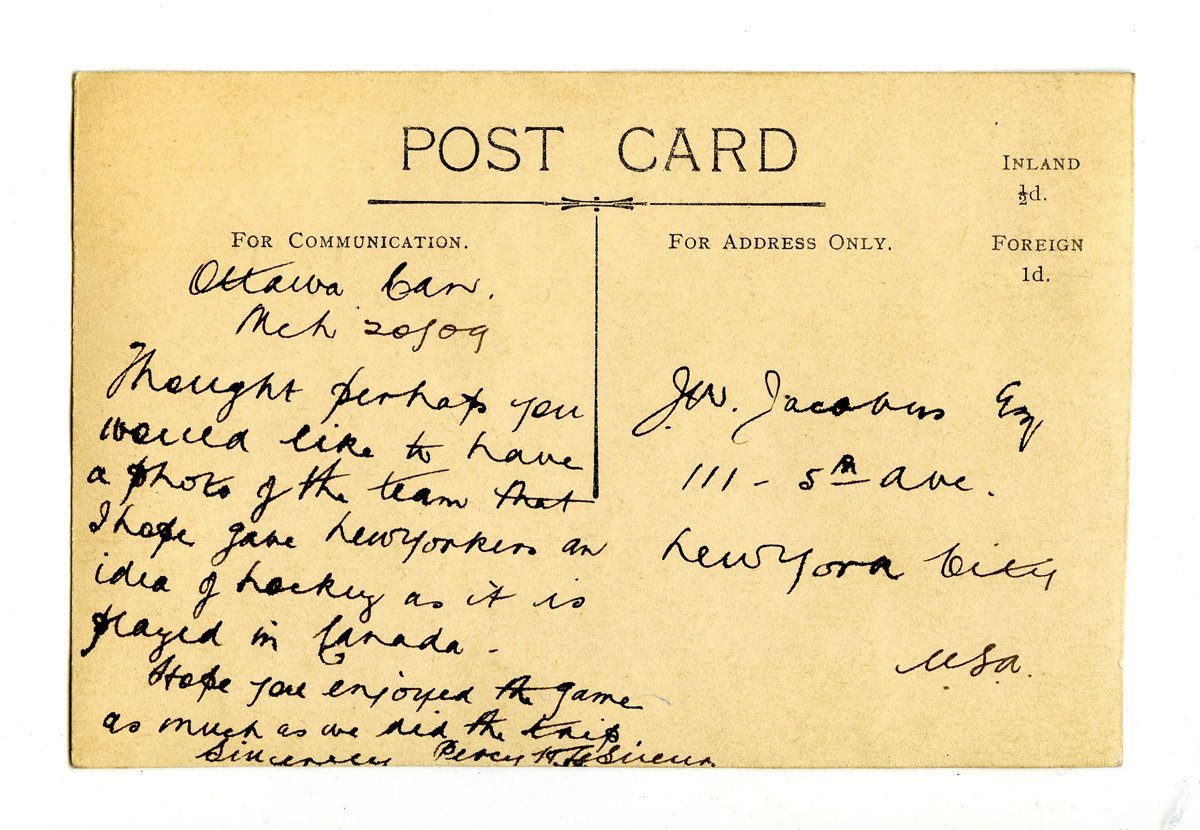 POST CARD
INLAND
½d.
FOREIGN
1d.
FOR COMMUNICATION.
FOR ADDRESS ONLY.
Ottawa Can.
Mch 20/09
Thought perhaps you
would like to have
a photo of the team that
I hope gave NewYorkers an
idea of hockey as it is
played in Canada -
Hope you enjoyed the game
as much as we did the trip
Sincerely Percy H. LeSueur.
J.W. Jacobus Esq
111 - 5th Ave.
New York City
U.S.A.